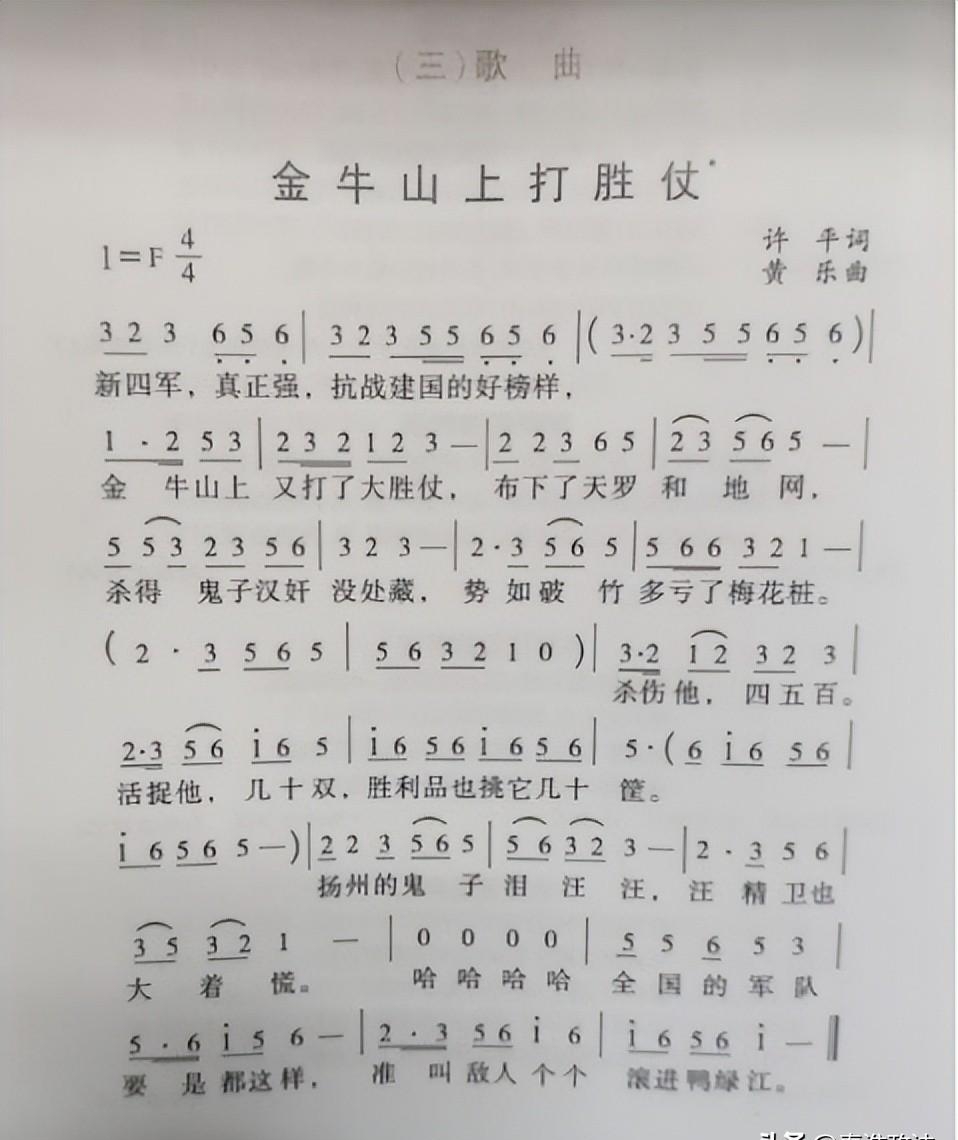 （三）歌 曲
金牛山上打胜仗*
1=F 4/4
许 平词
黄 乐曲
3 2 3 6 5 6 | 3 2 3 5 5 6 5 6 | ( 3·2 3 5 5 6 5 6 ) |
新四军，真正强，抗战建国的好榜样，
1 · 2 5 3 | 2 3 2 1 2 3 — | 2 2 3 6 5 | 2 3 5 6 5 — |
金 牛山上 又打了大胜仗， 布下了天罗 和 地 网，
5 5 3 2 3 5 6 | 3 2 3 — | 2 · 3 5 6 5 | 5 6 6 3 2 1 — |
杀得 鬼子汉奸 没处藏， 势 如破 竹 多亏了梅花桩。
( 2 · 3 5 6 5 | 5 6 3 2 1 0 ) | 3·2 1 2 3 2 3 |
杀伤他， 四五百。
2·3 5 6 i 6 5 | i 6 5 6 i 6 5 6 | 5 · ( 6 i 6 5 6 |
活捉他， 几十双，胜利品也挑它几十 筐。
i 6 5 6 5 — ) | 2 2 3 5 6 5 | 5 6 3 2 3 — | 2 · 3 5 6 |
扬州的鬼 子 泪 汪 汪， 汪 精 卫也
3 5 3 2 1 — | 0 0 0 0 | 5 5 6 5 3 |
大 着 慌。 哈 哈 哈 哈 全 国 的 军 队
5 · 6 i 5 6 — | 2 · 3 5 6 i 6 | i 6 5 6 i — ‖
要 是 都这样， 准 叫 敌人 个个 滚进鸭绿江。